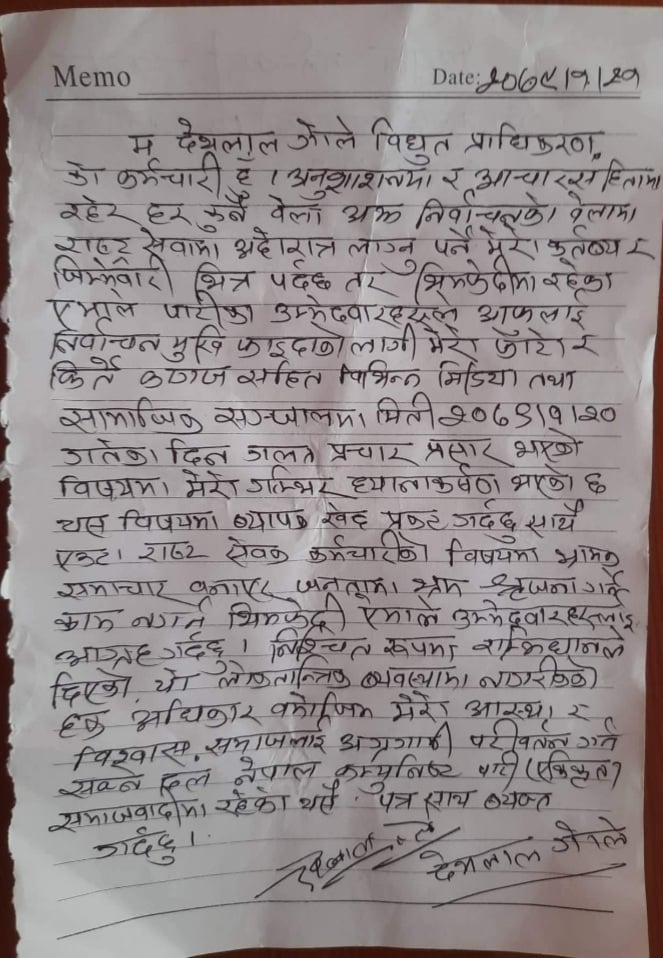 Memo
Date: २०७९।१।२१
म देशलाल जोले विधुत प्राधिकरण
को कर्मचारी हु । अनुशाशनमा र आचारसंहितामा
रहेर हर कुनै वेला अझ निर्वाचनको वेलामा
राष्ट्र सेवामा अहोरात्र लाग्नु पर्ने मेरो कर्तब्य र
जिम्मेवारी भित्र पर्दछ तर भिमफेदीमा रहेका
एमाले पार्टीका उम्मेदवारहरुले आफुलाई
निर्वाचन मुखि फाइदाको लागी मेरो फोटो र
किर्ते कागज सहित विभिन्न मिडिया तथा
सामाजिक सञ्जालमा मिती २०७९।१।२०
गतेका दिन गलत प्रचार प्रसार भएको
विषयमा मेरो गम्भिर ध्यानाकर्षण भएको छ
यस विषयमा ब्यापक खेद प्रकट गर्दछु साथै
एउटा राष्ट्र सेवक कर्मचारीको विषयमा भ्रामक
समाचार वनाएर जनतामा भ्रम श्रृजना गर्ने
काम नगर्न भिमफेदी एमाले उम्मेदवारहरुलाई
आग्रह गर्दछु । निश्चित रूपमा सम्बिधानले
दिएको यो लोकतान्त्रिक ब्यवस्थामा नागरीकको
हक अधिकार वमोजिम मेरो आस्था र
विश्वास समाजलाई अग्रगामी परीवर्तन गर्न
सक्ने दल नेपाल कम्युनिष्ट पार्टी (एकिकृत)
समाजवादीमा रहेको यसै पत्र साथ ब्यक्त
गर्दछु ।
देशलाल जोले